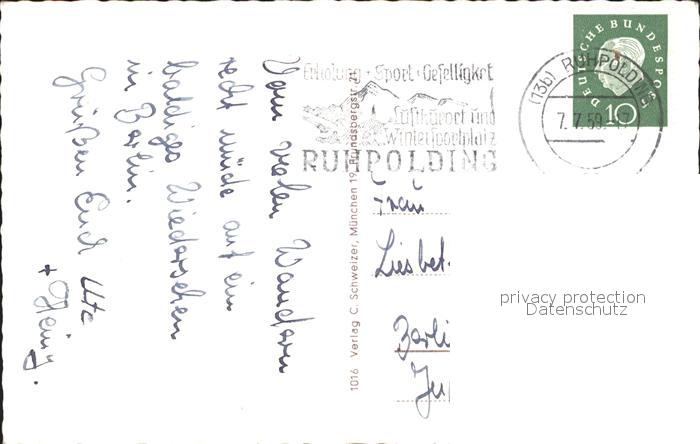 Vom vielen Wandern
recht müde auf ein
baldiges Wiedersehen
in Berlin.
Grüßen Euch Ute
+ Heinz.
1016 Verlag C. Schweizer, München 19, Brundsbergstr.
Erholung · Sport · Geselligkeit
Luftkurort und
Wintersportplatz
RUHPOLDING
(13b) RUHPOLDING
7.7.59.-17
DEUTSCHE BUNDESPOST
10
Frau
Liesbet
Berli
privacy protection
Datenschutz